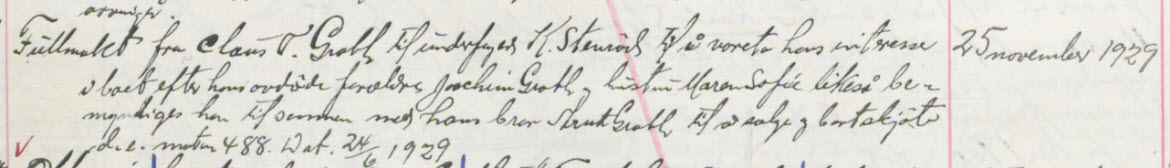 arvinger.
Fullmakt fra Claus T. Groth til underfuldm. K. Stenröd til å vareta hans interesser
i boet efter hans avdöde foreldre Joachim Groth og hustru Maren Sofie likeså be-
myndiges han til sammen med hans bror Knut Groth til å selge og bortskjöte
d.e. matr 488. Dat. 24/6 1929
25 november 1929